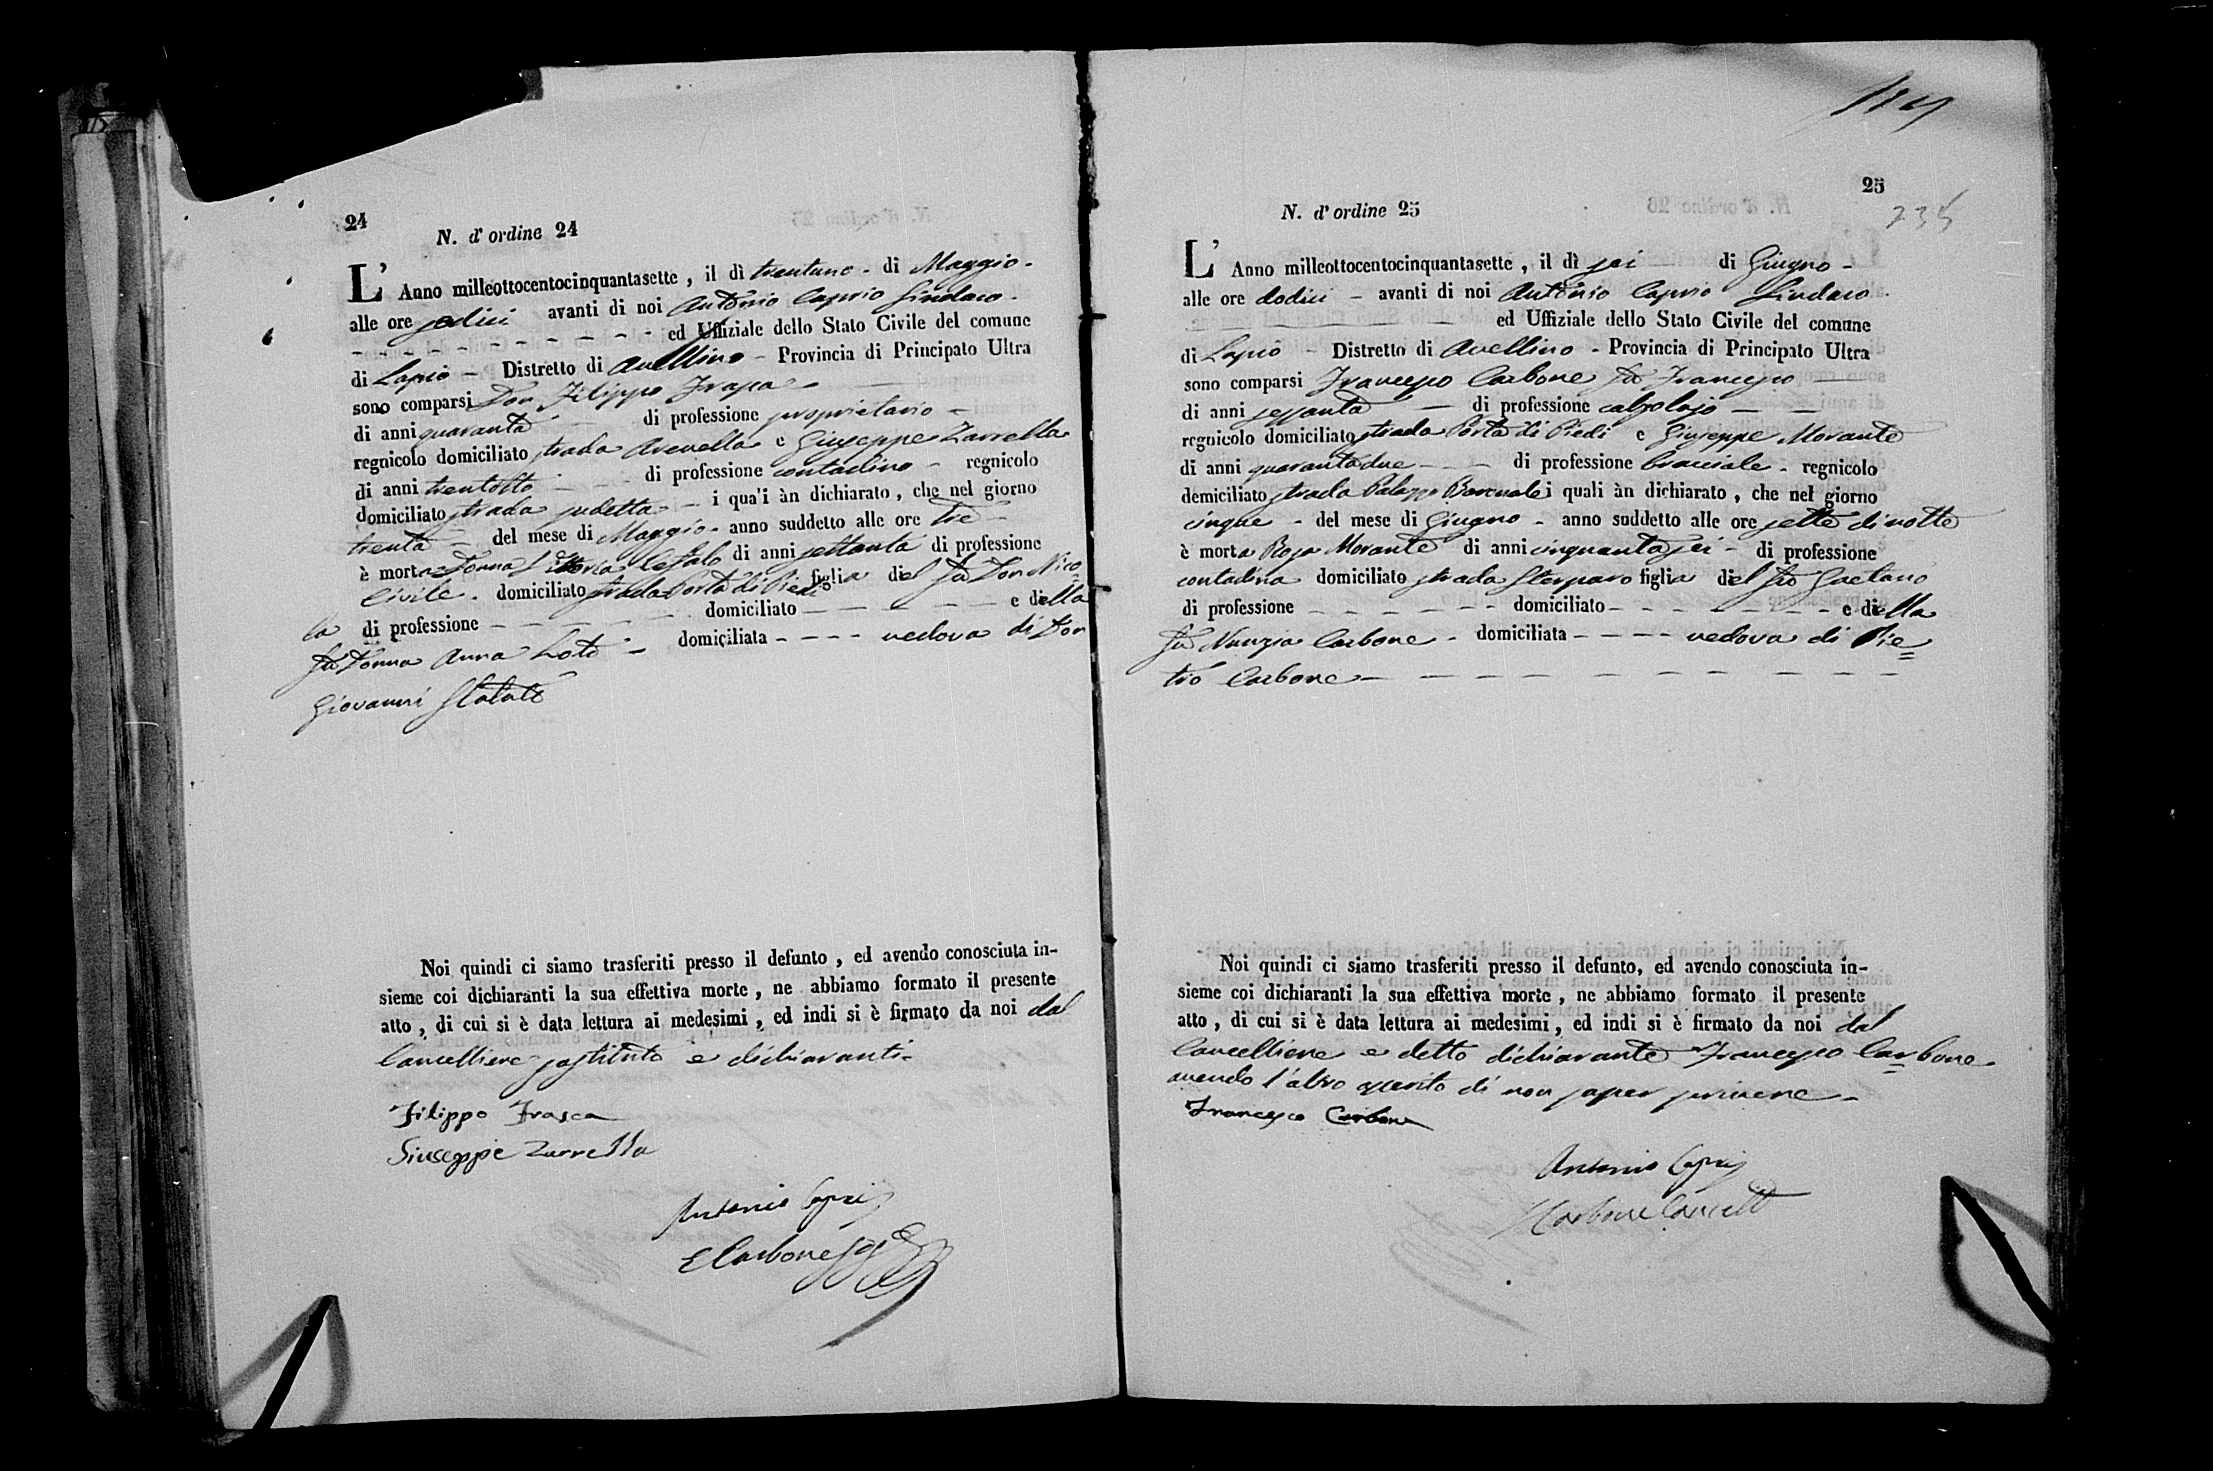 24
N. d' ordine 24
L' Anno milleottocentocinquantasette , il dì trentuno - di Maggio -
alle ore sedici avanti di noi Antonio Caprio Sindaco -
ed Uffiziale dello Stato Civile del comune
di Lapio - Distretto di Avellino - Provincia di Principato Ultra
sono comparsi Don Filippo Frasca -
di anni quaranta di professione proprietario -
regnicolo domiciliato strada Arenella e Giuseppe Zarrella
di anni trentotto di professione contadino - regnicolo
domiciliato strada sudetta - i quali àn dichiarato , che nel giorno
trenta - del mese di Maggio - anno suddetto alle ore tre -
è morta Donna Vittoria Cefalo di anni settanta di professione
Civile - domiciliato strada Porta di Piedi figlia del fu Don Nico
la di professione - domiciliato - e della
fu Donna Anna Loto - domiciliata - - - - vedova di Don
Giovanni
Noi quindi ci siamo trasferiti presso il defunto , ed avendo conosciuta in-
sieme coi dichiaranti la sua effettiva morte , ne abbiamo formato il presente
atto , di cui si è data lettura ai medesimi , ed indi si è firmato da noi dal
Cancelliere sostituto e dichiaranti -
Filippo Frasca
Giuseppe Zarrella
Antonio Caprio
E Carbone
25
235
N. d' ordine 25
L' Anno milleottocentocinquantasette , il dì sei di Giugno -
alle ore dodici - avanti di noi Antonio Caprio Sindaco
ed Uffiziale dello Stato Civile del comune
di Lapio - Distretto di Avellino - Provincia di Principato Ultra
sono comparsi Francesco Carbone fu Francesco
di anni sessanta - di professione calzolajo - -
regnicolo domiciliato strada Porta di Piedi e Giuseppe Morante
di anni quarantadue - - - di professione bracciale - regnicolo
domiciliato strada Palazzo Baronale i quali àn dichiarato , che nel giorno
cinque - del mese di Giugno - anno suddetto alle ore sette di notte
è morta Rosa Morante di anni cinquantasei - di professione
contadina domiciliato strada Sterparo figlia del fu Gaetano
di professione - - - - - - domiciliato - - - - - - - e della
fu Nunzia Carbone - domiciliata - - - - vedova di Pie=
tro Carbone - - - - - - - - - -
Noi quindi ci siamo trasferiti presso il defunto, ed avendo conosciuta in-
sieme coi dichiaranti la sua effettiva morte , ne abbiamo formato il presente
atto , di cui si è data lettura ai medesimi , ed indi si è firmato da noi dal
Cancelliere e detto dichiarante Francesco Carbone -
avendo l'altro asserito di non saper scrivere -
Francesco Carbone
Antonio Caprio
Carbone Cancell